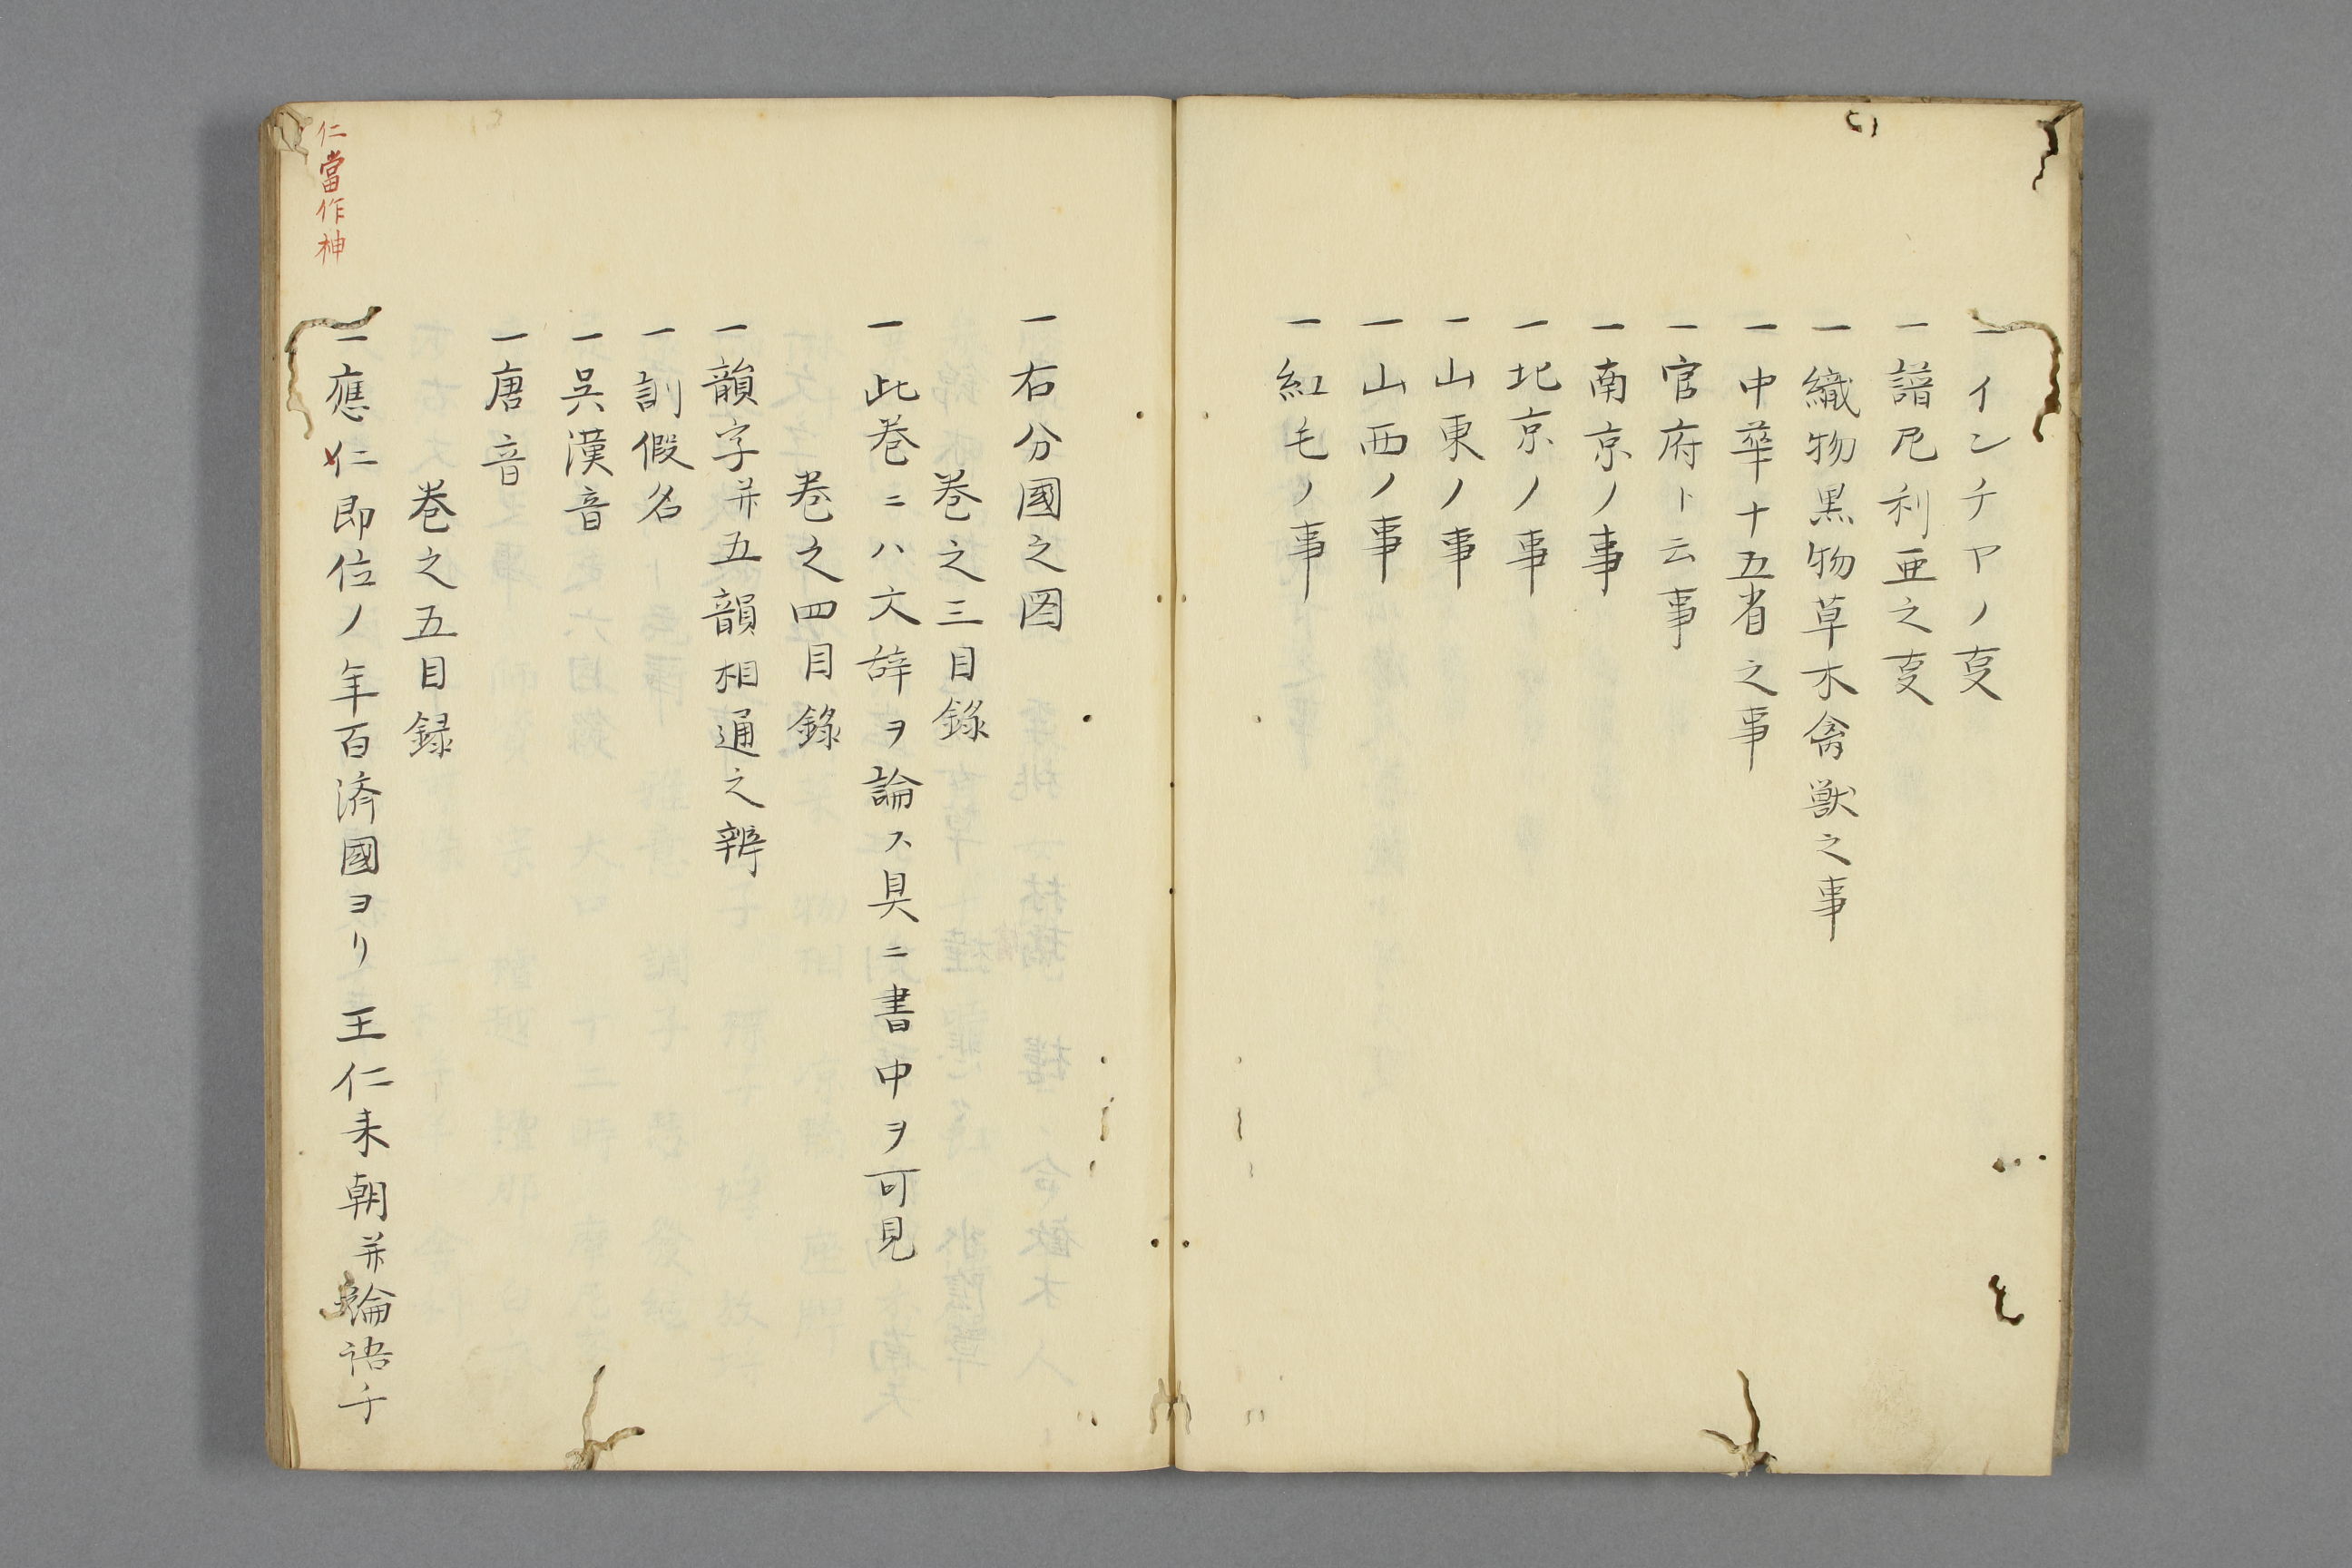 一インチヤノ㕝
一諳尼利亜之㕝
一織物黒物草木禽獣之事
一中華十五省之事
一官府ト云事
一南京ノ事
一北京ノ事
一山東ノ事
一山西ノ事
一紅毛ノ事
一右分國之図
巻之三目錄
一此巻ニハ文辞ヲ論ス具ニ書中ヲ可見
巻之四目錄
一韻字并五韻相通之辨
一訓假名
一呉漢音
一唐音
巻之五目録
一應仁即位ノ年百済國ヨリ王仁来朝并論語千
仁當作神